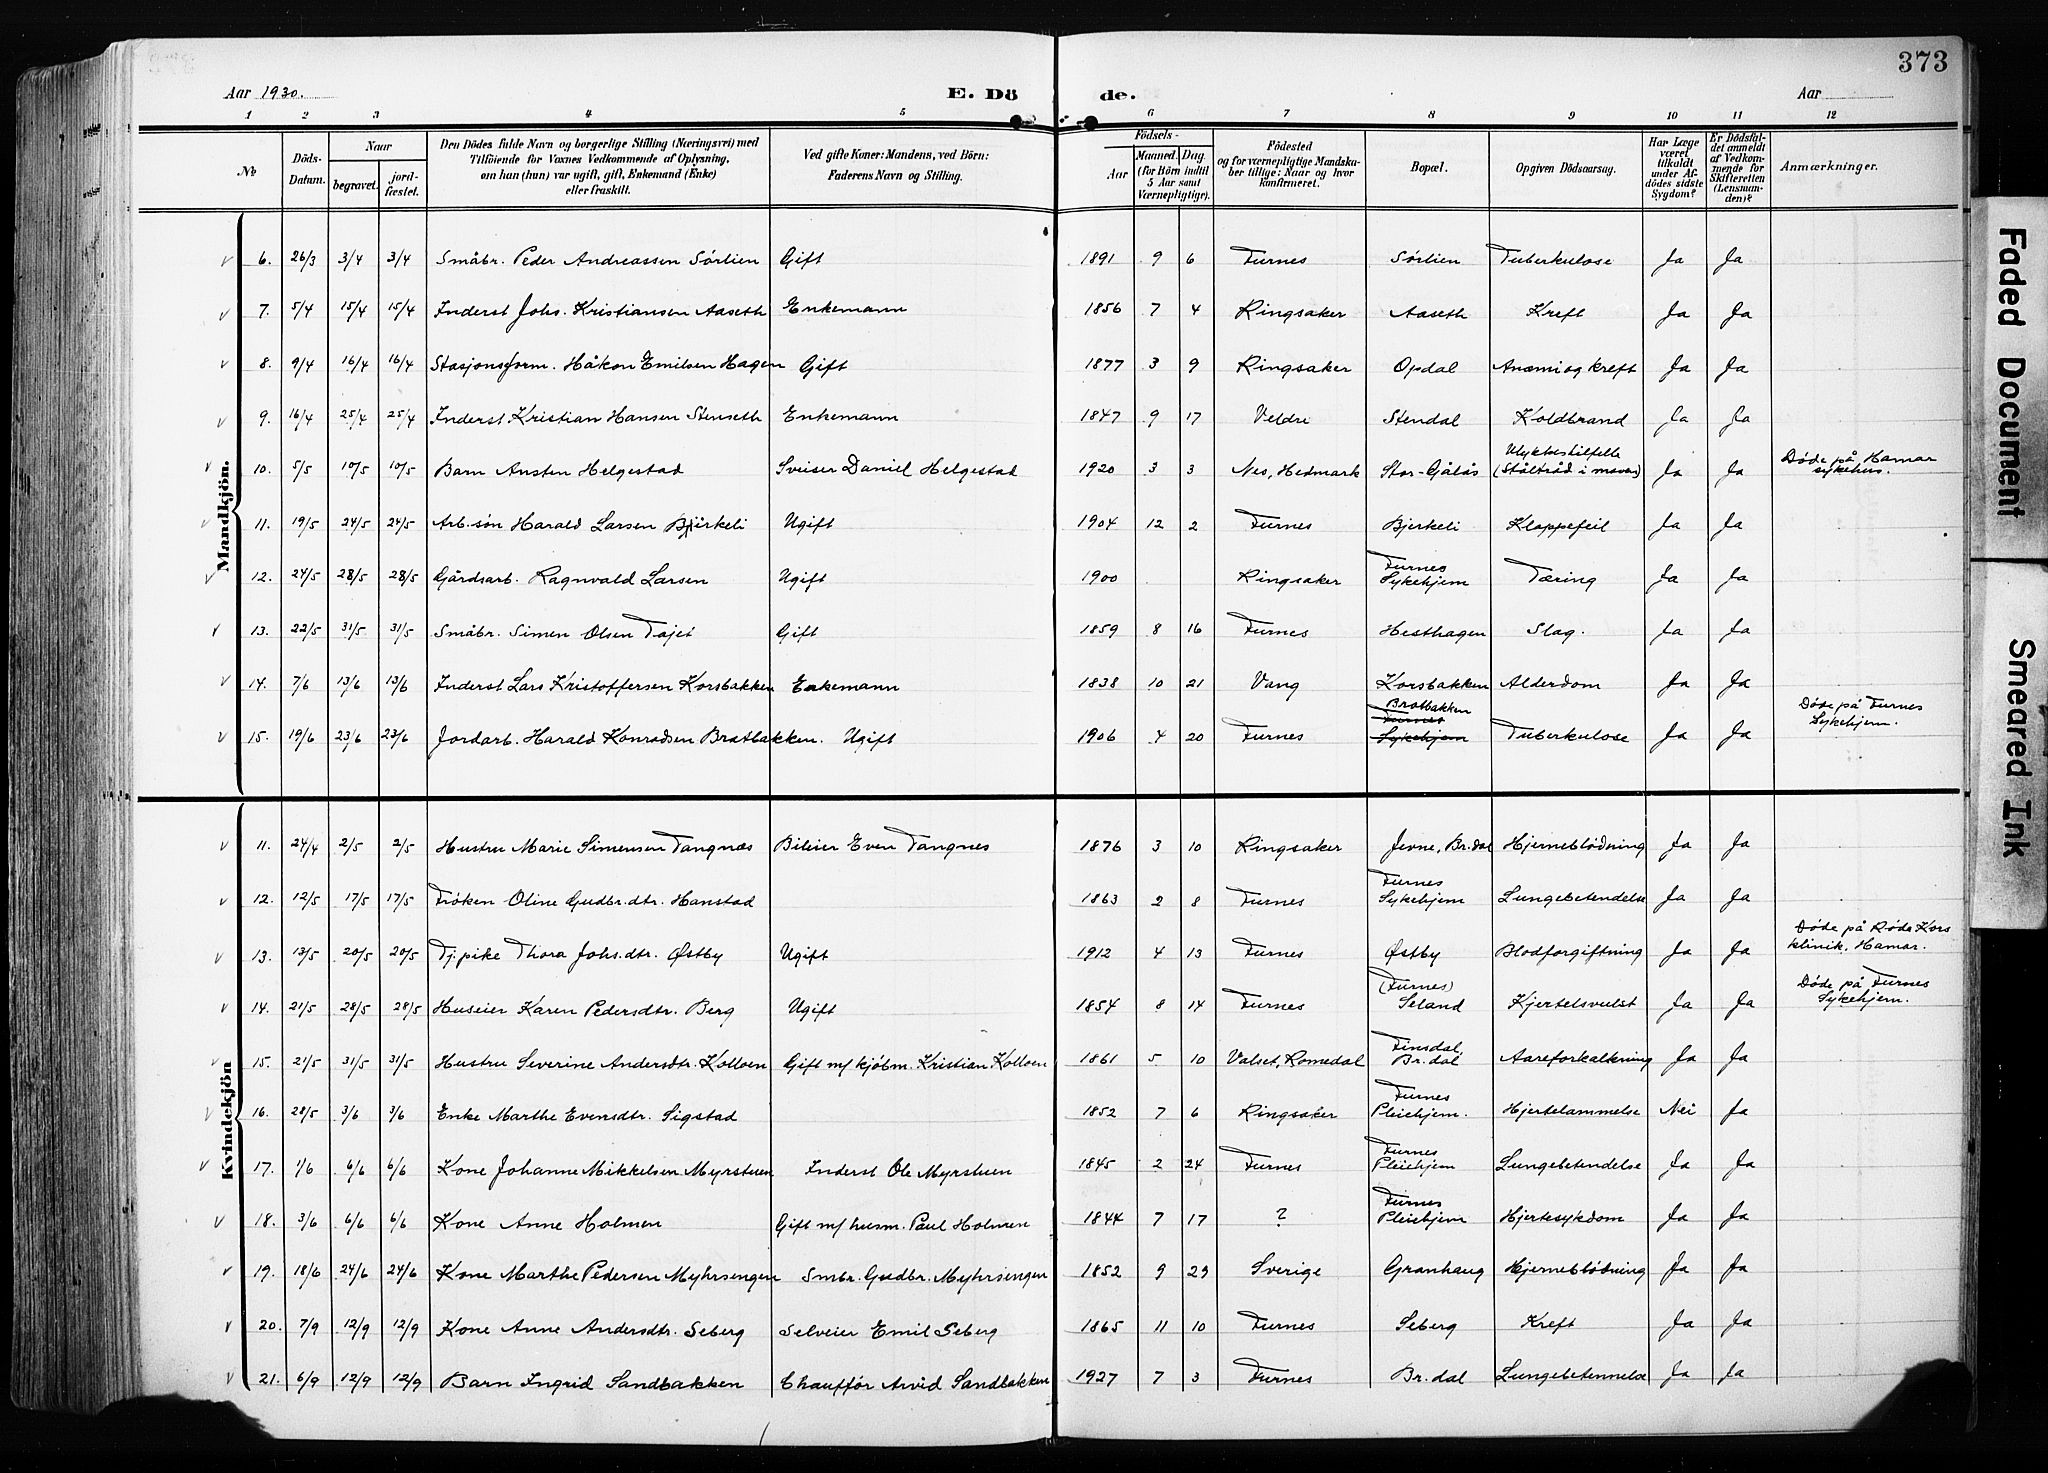 373
Aar 1930.
E. Döde.
Aar
1 2 3 4 5 6 7 8 9 10 11 12
No
Döds-Datum.
Naar
begravet.
jordfæstet.
Den Dödes fulde Navn og borgerlige Stilling (Næringsvei) med
Tilföiende for Voxnes Vedkommende af Oplysning,
om han (hun) var ugift, gift, Enkemand (Enke)
eller fraskilt.
Ved gifte Koner: Mandens, ved Börn:
Faderens Navn og Stilling.
Födsels-
Aar
Maaned. Dag.
(for Börn indtil
5 Aar samt
Værnepligtige).
Födested
og for værnepligtige Mandskaber tillige: Naar og hvor
konfirmeret.
Bopæl.
Opgiven Dödsaarsag.
Har Læge
været
tilkaldt
under Afdödes sidste
Sygdom?
Er Dödsfaldet anmeldt
af Vedkommende for
Skifteretten
(Lensmanden)?
Anmærkninger.
Mandkjön.
6. 26/3 3/4 3/4 Småbr. Peder Andreassen Sörlien Gift 1891 9 6 Furnes Sörlien Tuberkulose Ja Ja
7. 5/4 15/4 15/4 Inderst Johs. Kristiansen Aaseth Enkemann 1856 7 4 Ringsaker Aaseth Kreft Ja Ja
8. 9/4 16/4 16/4 Stasjonsform. Håkon Emilsen Hagen Gift 1877 3 9 Ringsaker Opdal Anæmi og kreft Ja Ja
9. 16/4 25/4 25/4 Inderst Kristian Hansen Stenseth Enkemann 1847 9 17 Veldre Stendal Koldbrand Ja Ja
10. 5/5 10/5 10/5 Barn Austen Helgestad Sveiser Daniel Helgestad 1920 3 3 Nes, Hedmark Stor-Gjålås Ulykkestilfelle (Ståltråd i maven) Ja Ja Døde på Hamar sykehus.
11. 19/5 24/5 24/5 Arb.søn Harald Larsen Bjürkeli Ugift 1904 12 2 Furnes Bjerkeli Klappefeil Ja Ja
12. 24/5 28/5 28/5 Gårdsarb. Ragnvald Larsen Ugift 1900 Ringsaker Furnes Sykehjem Tæring Ja Ja
13. 22/5 31/5 31/5 Småbr. Simen Olsen Tajet Gift 1859 8 16 Furnes Hesthagen Slag. Ja Ja
14. 7/6 13/6 13/6 Inderst Lars Kristoffersen Korsbakken Enkemann 1838 10 21 Vang Korsbakken Alderdom Ja Ja
15. 19/6 23/6 23/6 Jordarb. Harald Konradsen Bratbakken. Ugift 1906 4 20 Furnes Bratbakken Furnes Sykehjem Tuberkulose Ja Ja Døde på Furnes Sykehjem.
Kvindekjön
11. 24/4 2/5 2/5 Hustru Marie Simensen Tangnæs Bileier Even Tangnes 1876 3 10 Ringsaker Jevne, Br.dal Hjerneblödning Ja Ja
12. 12/5 17/5 17/5 Fröken Oline Gudbr.dtr. Hanstad 1863 2 8 Furnes Furnes Sykehjem Lungebetendelse Ja Ja
13. 13/5 20/5 20/5 Tj.pike Thora Johs.dtr. Østby Ugift 1912 4 13 Furnes Østby Blodforgiftning Ja Ja Døde på Røde Kors klinik, Hamar.
14. 21/5 28/5 28/5 Huseier Karen Pedersdtr. Berg Ugift 1854 8 14 Furnes (Furnes) Seland Kjertelsvulst Ja Ja Døde på Furnes Sykehjem.
15. 21/5 31/5 31/5 Hustru Severine Andersdtr. Kolloen Gift m/ kjöbm. Kristian Kolloen 1861 5 10 Valset, Romedal Finsdal, Br.dal Aareforkalkning Ja Ja
16. 28/5 3/6 3/6 Enke Marthe Evensdtr. Sigstad 1852 7 6 Ringsaker Furnes Pleiehjem. Hjertelammelse Nei Ja
17. 1/6 6/6 6/6 Kone Johanne Mikkelsen Myrstuen Inderst Ole Myrstuen 1845 2 24 Furnes Furnes Pleiehjem Lungebetendelse Ja Ja
18. 3/6 6/6 6/6 Kone Anne Holmen Gift m/ husm. Paul Holmen 1844 7 17 ? Furnes Pleiehjem Hjertesykdom Ja Ja
19. 18/6 24/6 24/6 Kone Marthe Pedersen Myhrsengen Smbr. Gudbr. Myhrsengen 1852 9 29 Sverige Granhaug Hjerneblödning Ja Ja
20. 7/9 12/9 12/9 Kone Anne Andersdtr. Seberg Selveier Emil Seberg 1865 11 10 Furnes Seberg Kreft Ja Ja
21. 6/9 12/9 12/9 Barn Ingrid Sandbakken Chaufför Arvid Sandbakken 1927 7 3 Furnes Br.dal Lungebetennelse Ja Ja
Faded Document
Smeared Ink